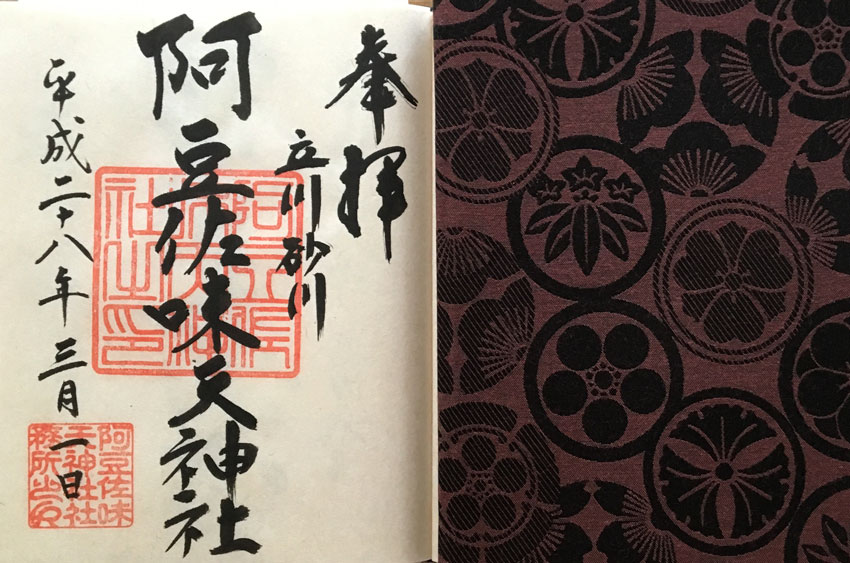 奉拝
立川砂川
阿豆佐味天神社
平成二十八年三月一日
阿豆佐
味天神
社之印
阿豆佐味
天神社社
務所之印